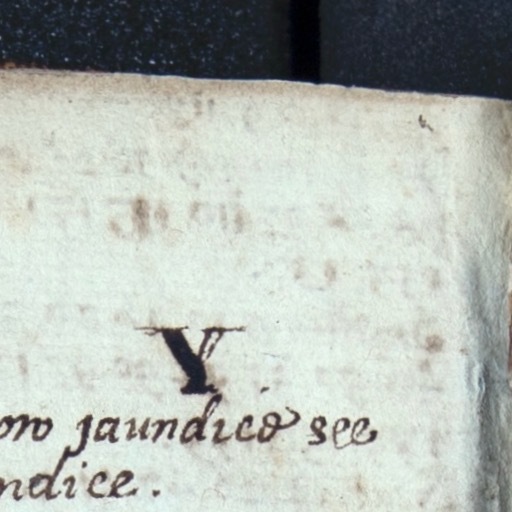 Y
ow jaundice see
ndice.